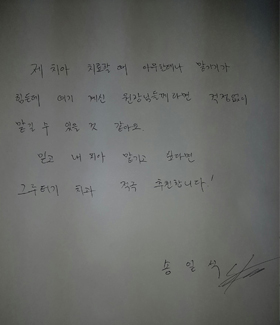 제 치아 치료할 때 아무한테나 맡기기가
힘든데 여기 계신 원장님들께라면 걱정없이
맡길 수 있을 것 같아요.
믿고 내 치아 맡기고 싶다면
그루터기 치과 적극 추천합니다!
송 일 석